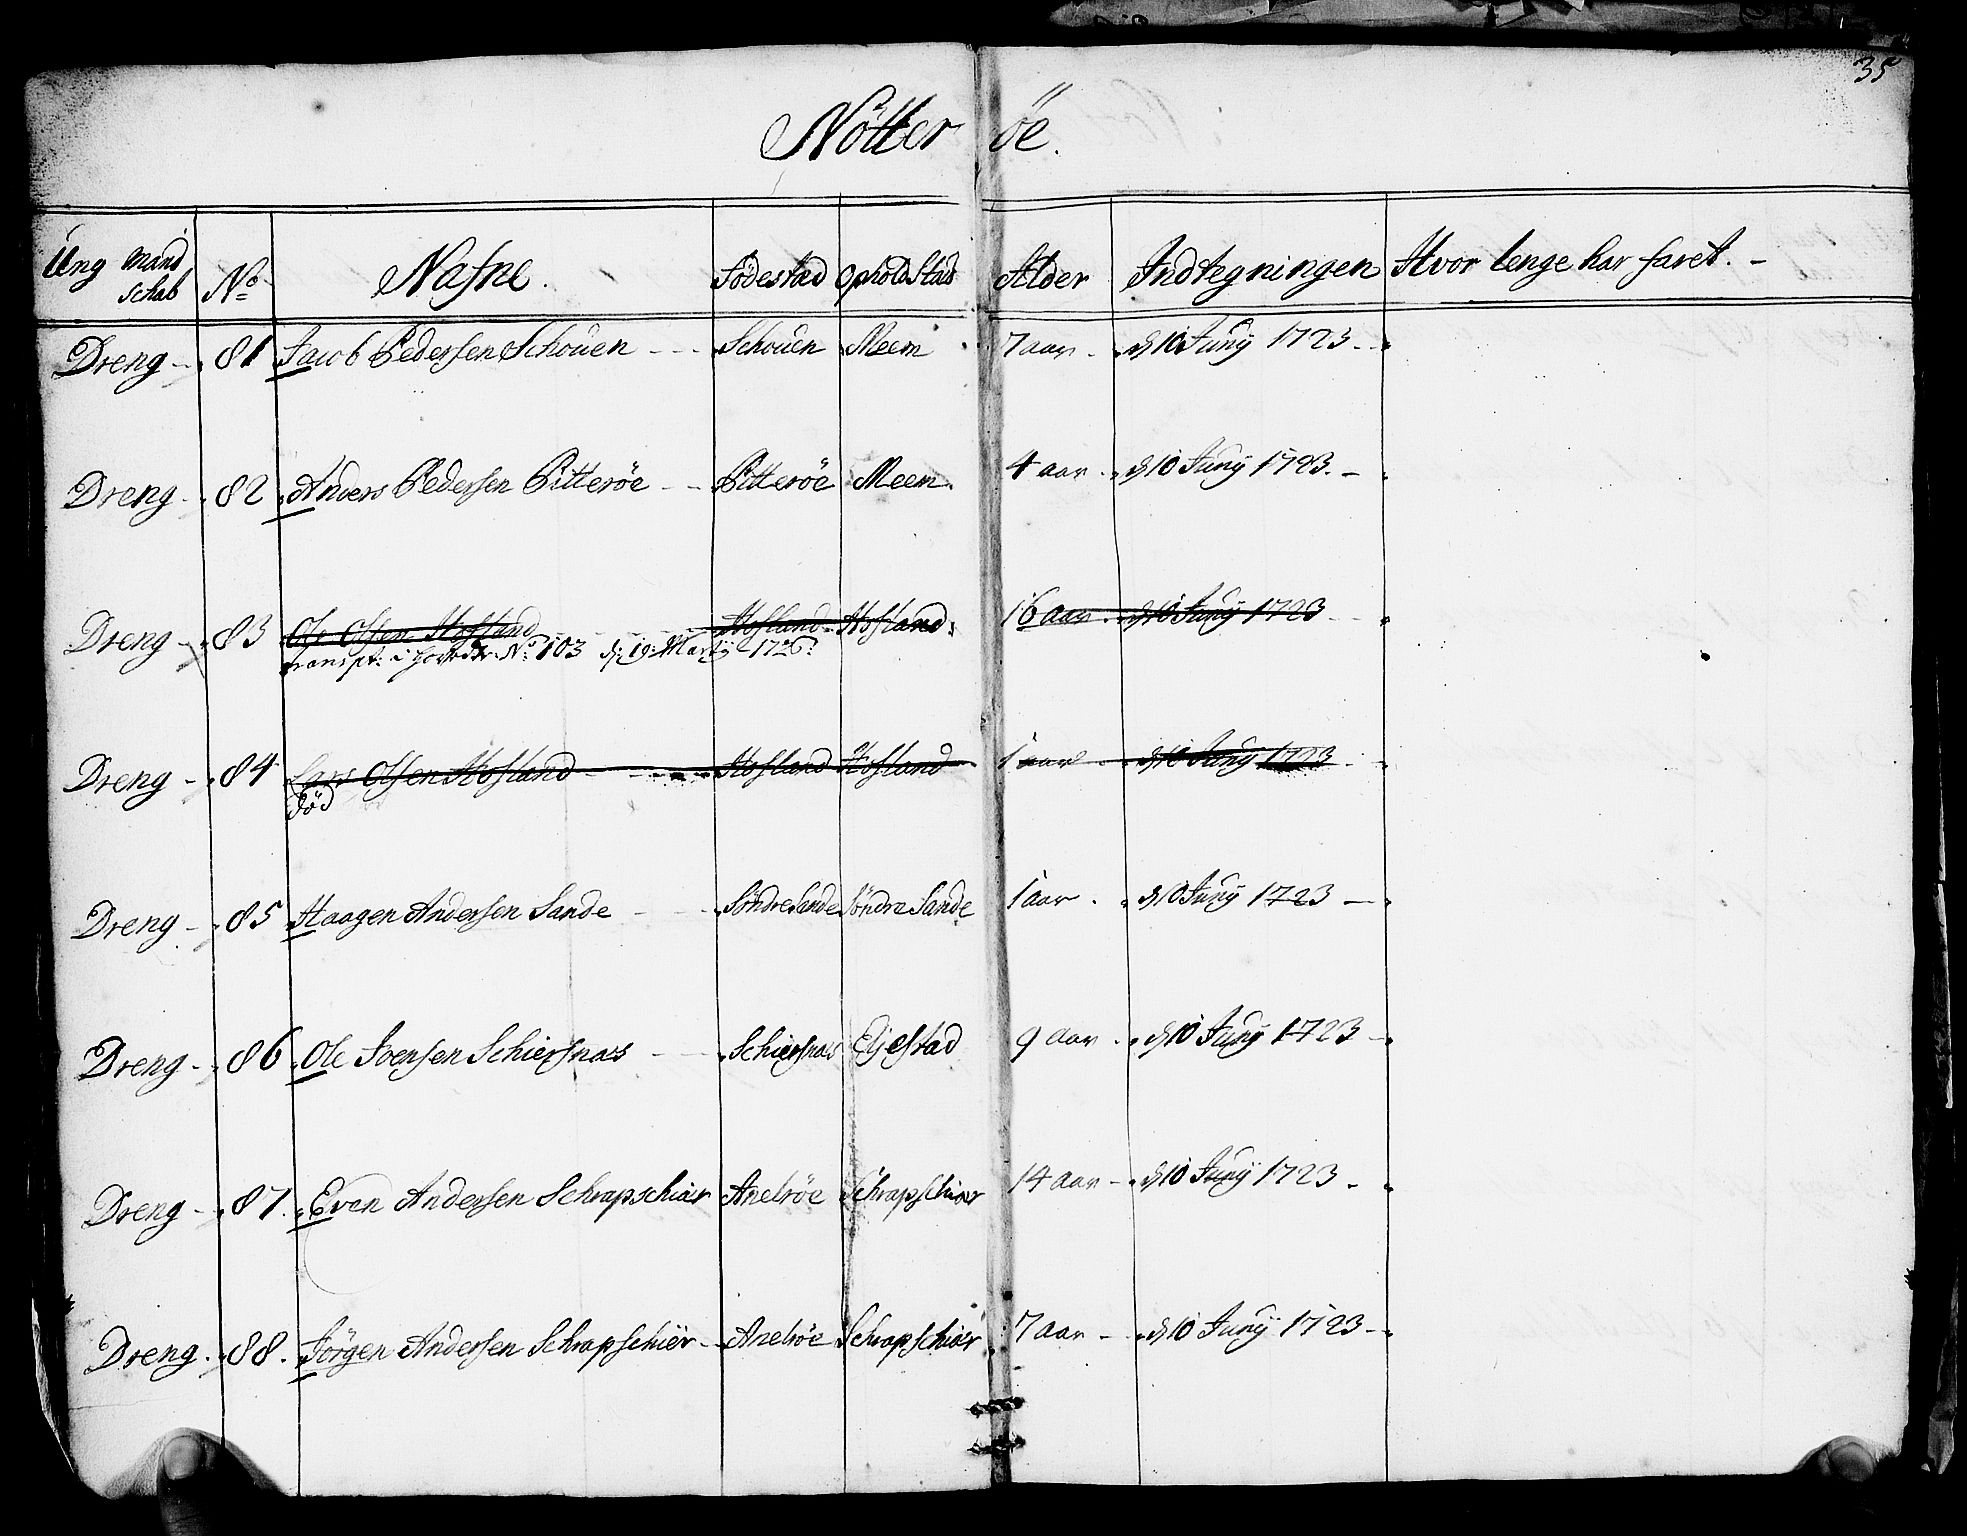 35
Nötter öe.
Ung Mand schab No Nafne. Födestæd Ophold Stæd Alder Indtegningen Hvor lenge har faret. -
Dreng - 81 Jacob Pedersen Schouen - - Schouen Meem 7 aar - d 10 Junÿ 1723 -
Dreng - 82 Anders Pedersen Pitteröe - - Pitteröe Meem. 4 aar - d 10 Junÿ 1723. -
Dreng - 83 Ole Olsen Hofland - - Hofland - Hofland 16 aar - d 10 Junÿ 1723 -
transpt: i No 103 d: 19: Martÿ 1726
Dreng - 84 Lars Olsen Hofland - - Hofland Hofland 1 aar - d 10 Junÿ 1723 -
Död
Dreng - 85 Haagen Andersen Sande - - Söndre Sande Söndre Sande 1 aar - d 10 Junÿ 1723 -
Dreng - 86 Ole Svensen Schiersnæs - - Schiersnæs Eÿestad 9 aar - d 10 Junÿ 1723 -
Dreng - 87. Even Andersen Schrapschiær Anelröe Schrapschiær 14 aar - d 10 Junÿ 1723 -
Dreng - 88. Jörgen Andersen Schrapschiër - Anelröe Schrapschiær 7 aar - d 10 Junÿ 1723 -